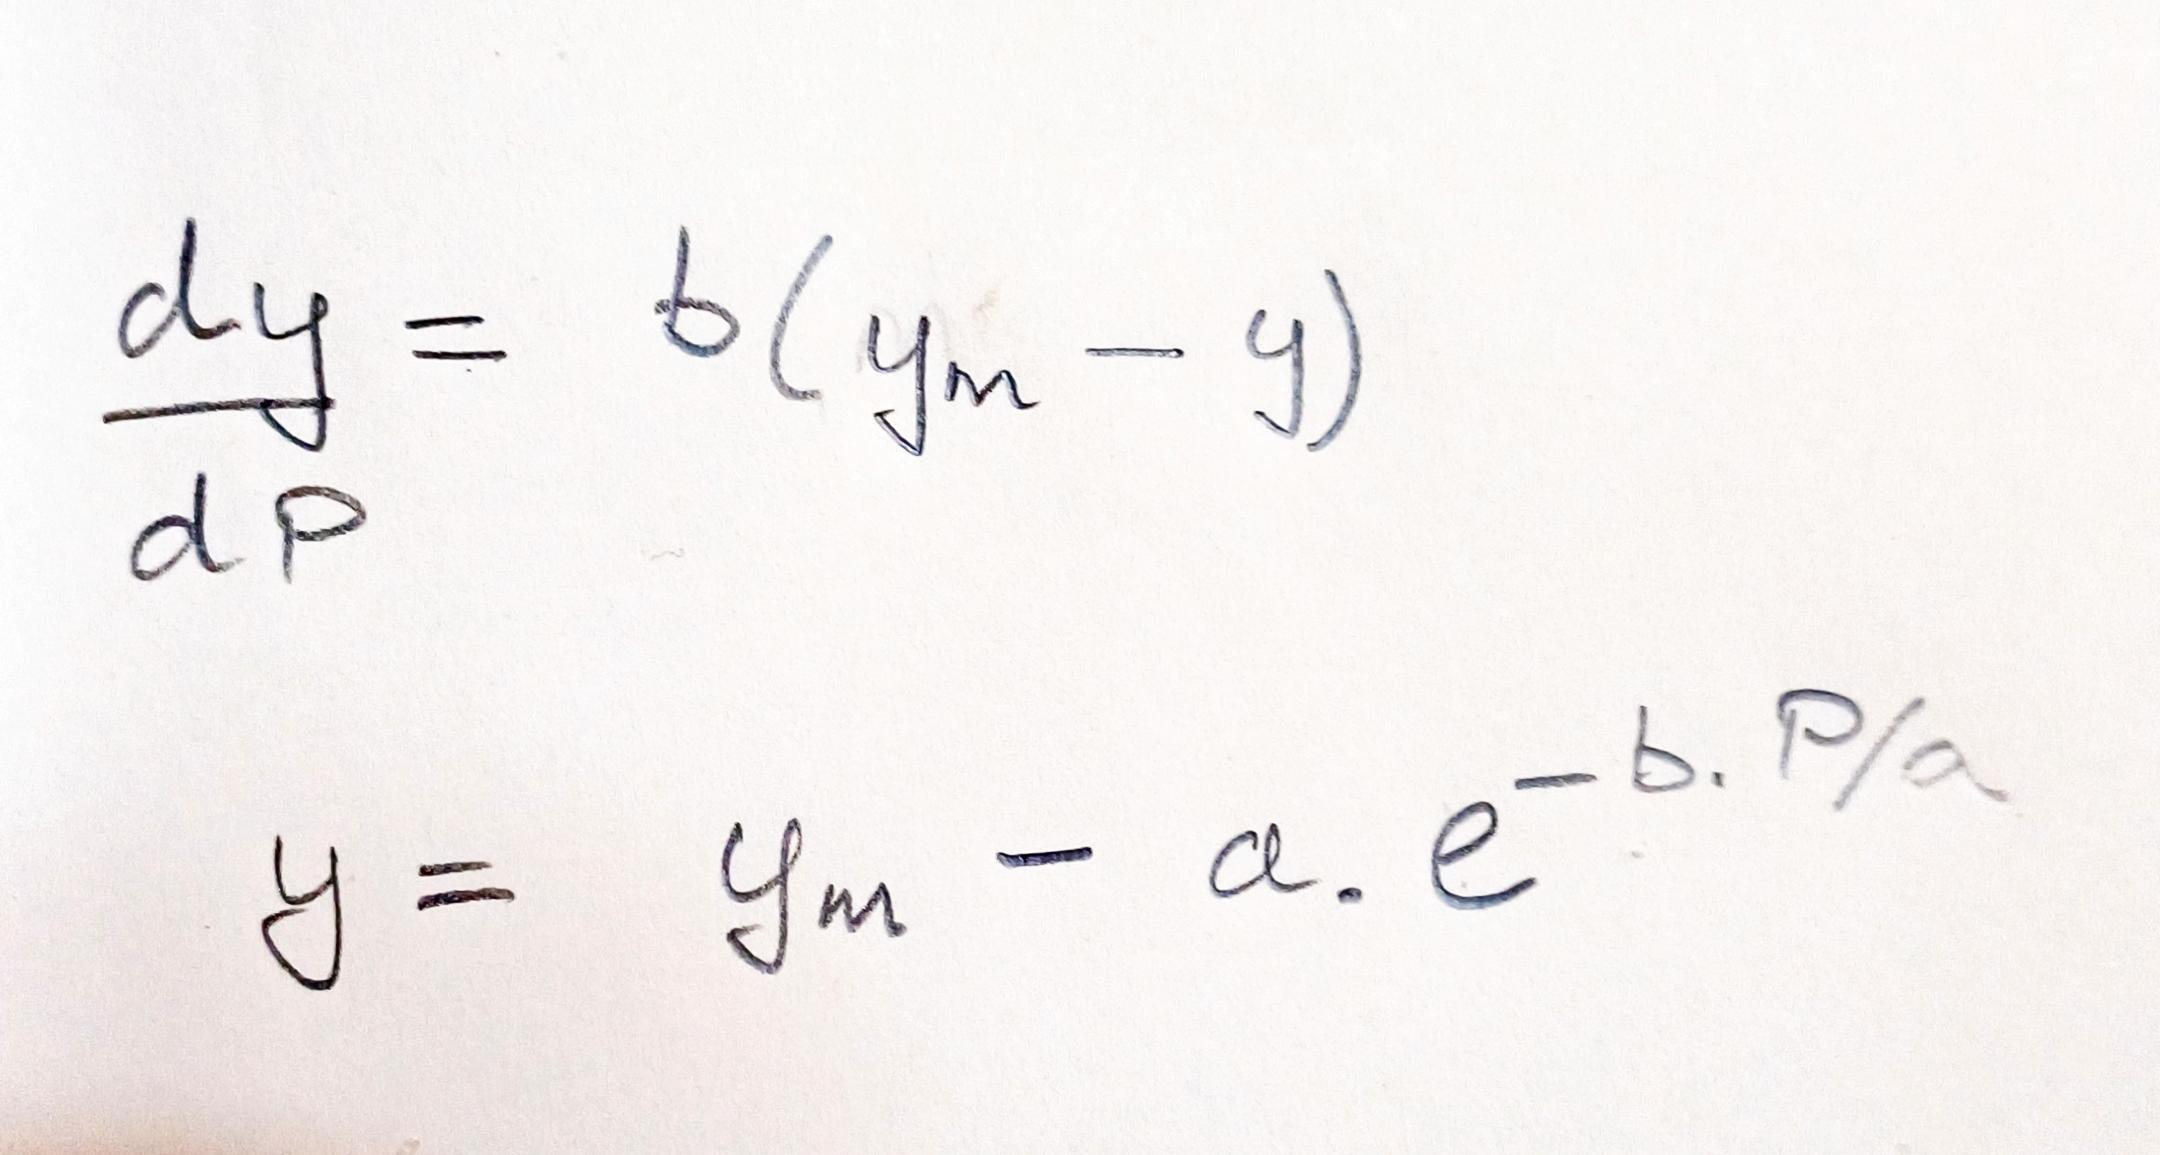 dy/dP = b(yₘ − y)
y = yₘ − a. e^(− b. P/a)